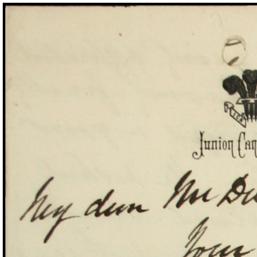 Junior Car
My dear Mr Du
Your